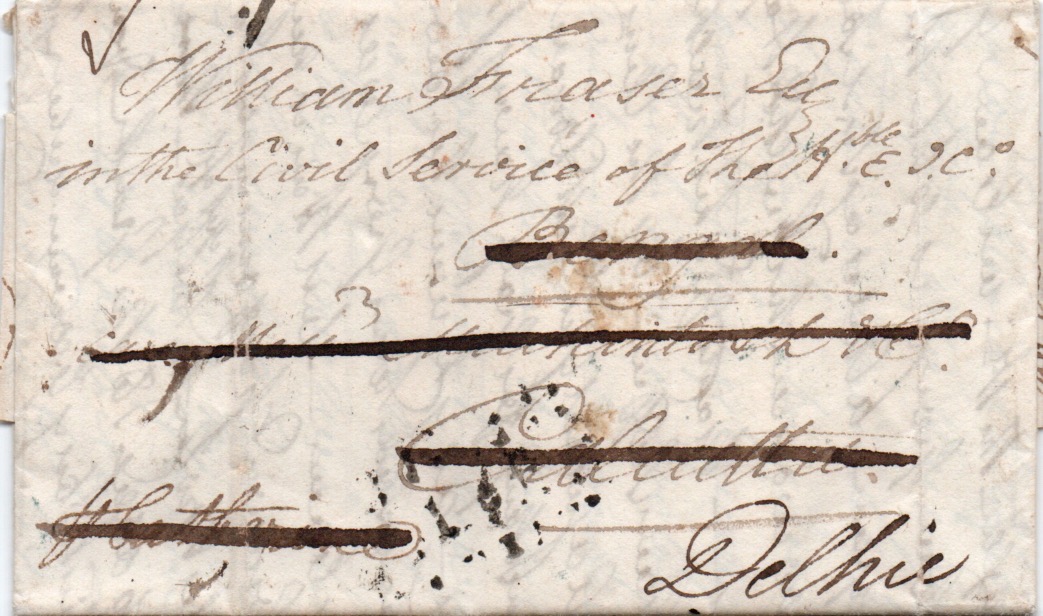 William Fraser Esq
in the Civil Service of the Hble E. I. Co.
Bengal.
Mackintosh & Co.
Calcutta.
Delhie